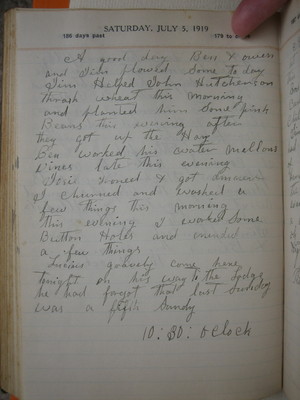 SATURDAY, JULY 5, 1919
186 days past
179 to
A good day Ben & owen
and John plowed some to day
Jim Helped John Hutchenson
thrash wheat this morning
and planted him some pink
Beans this evening after
they got up the Hay
Ben worked his water mellons
vines late this evening
Josie Ironed & got dinner
I churned and washed a
few things this morning
this evening I worked some
Button Holes and mended
a few things
Lucius come here
tonight on his way to the Lodge
he had forgot that last Sunday
was a fifth Sunday
10:30: oclock